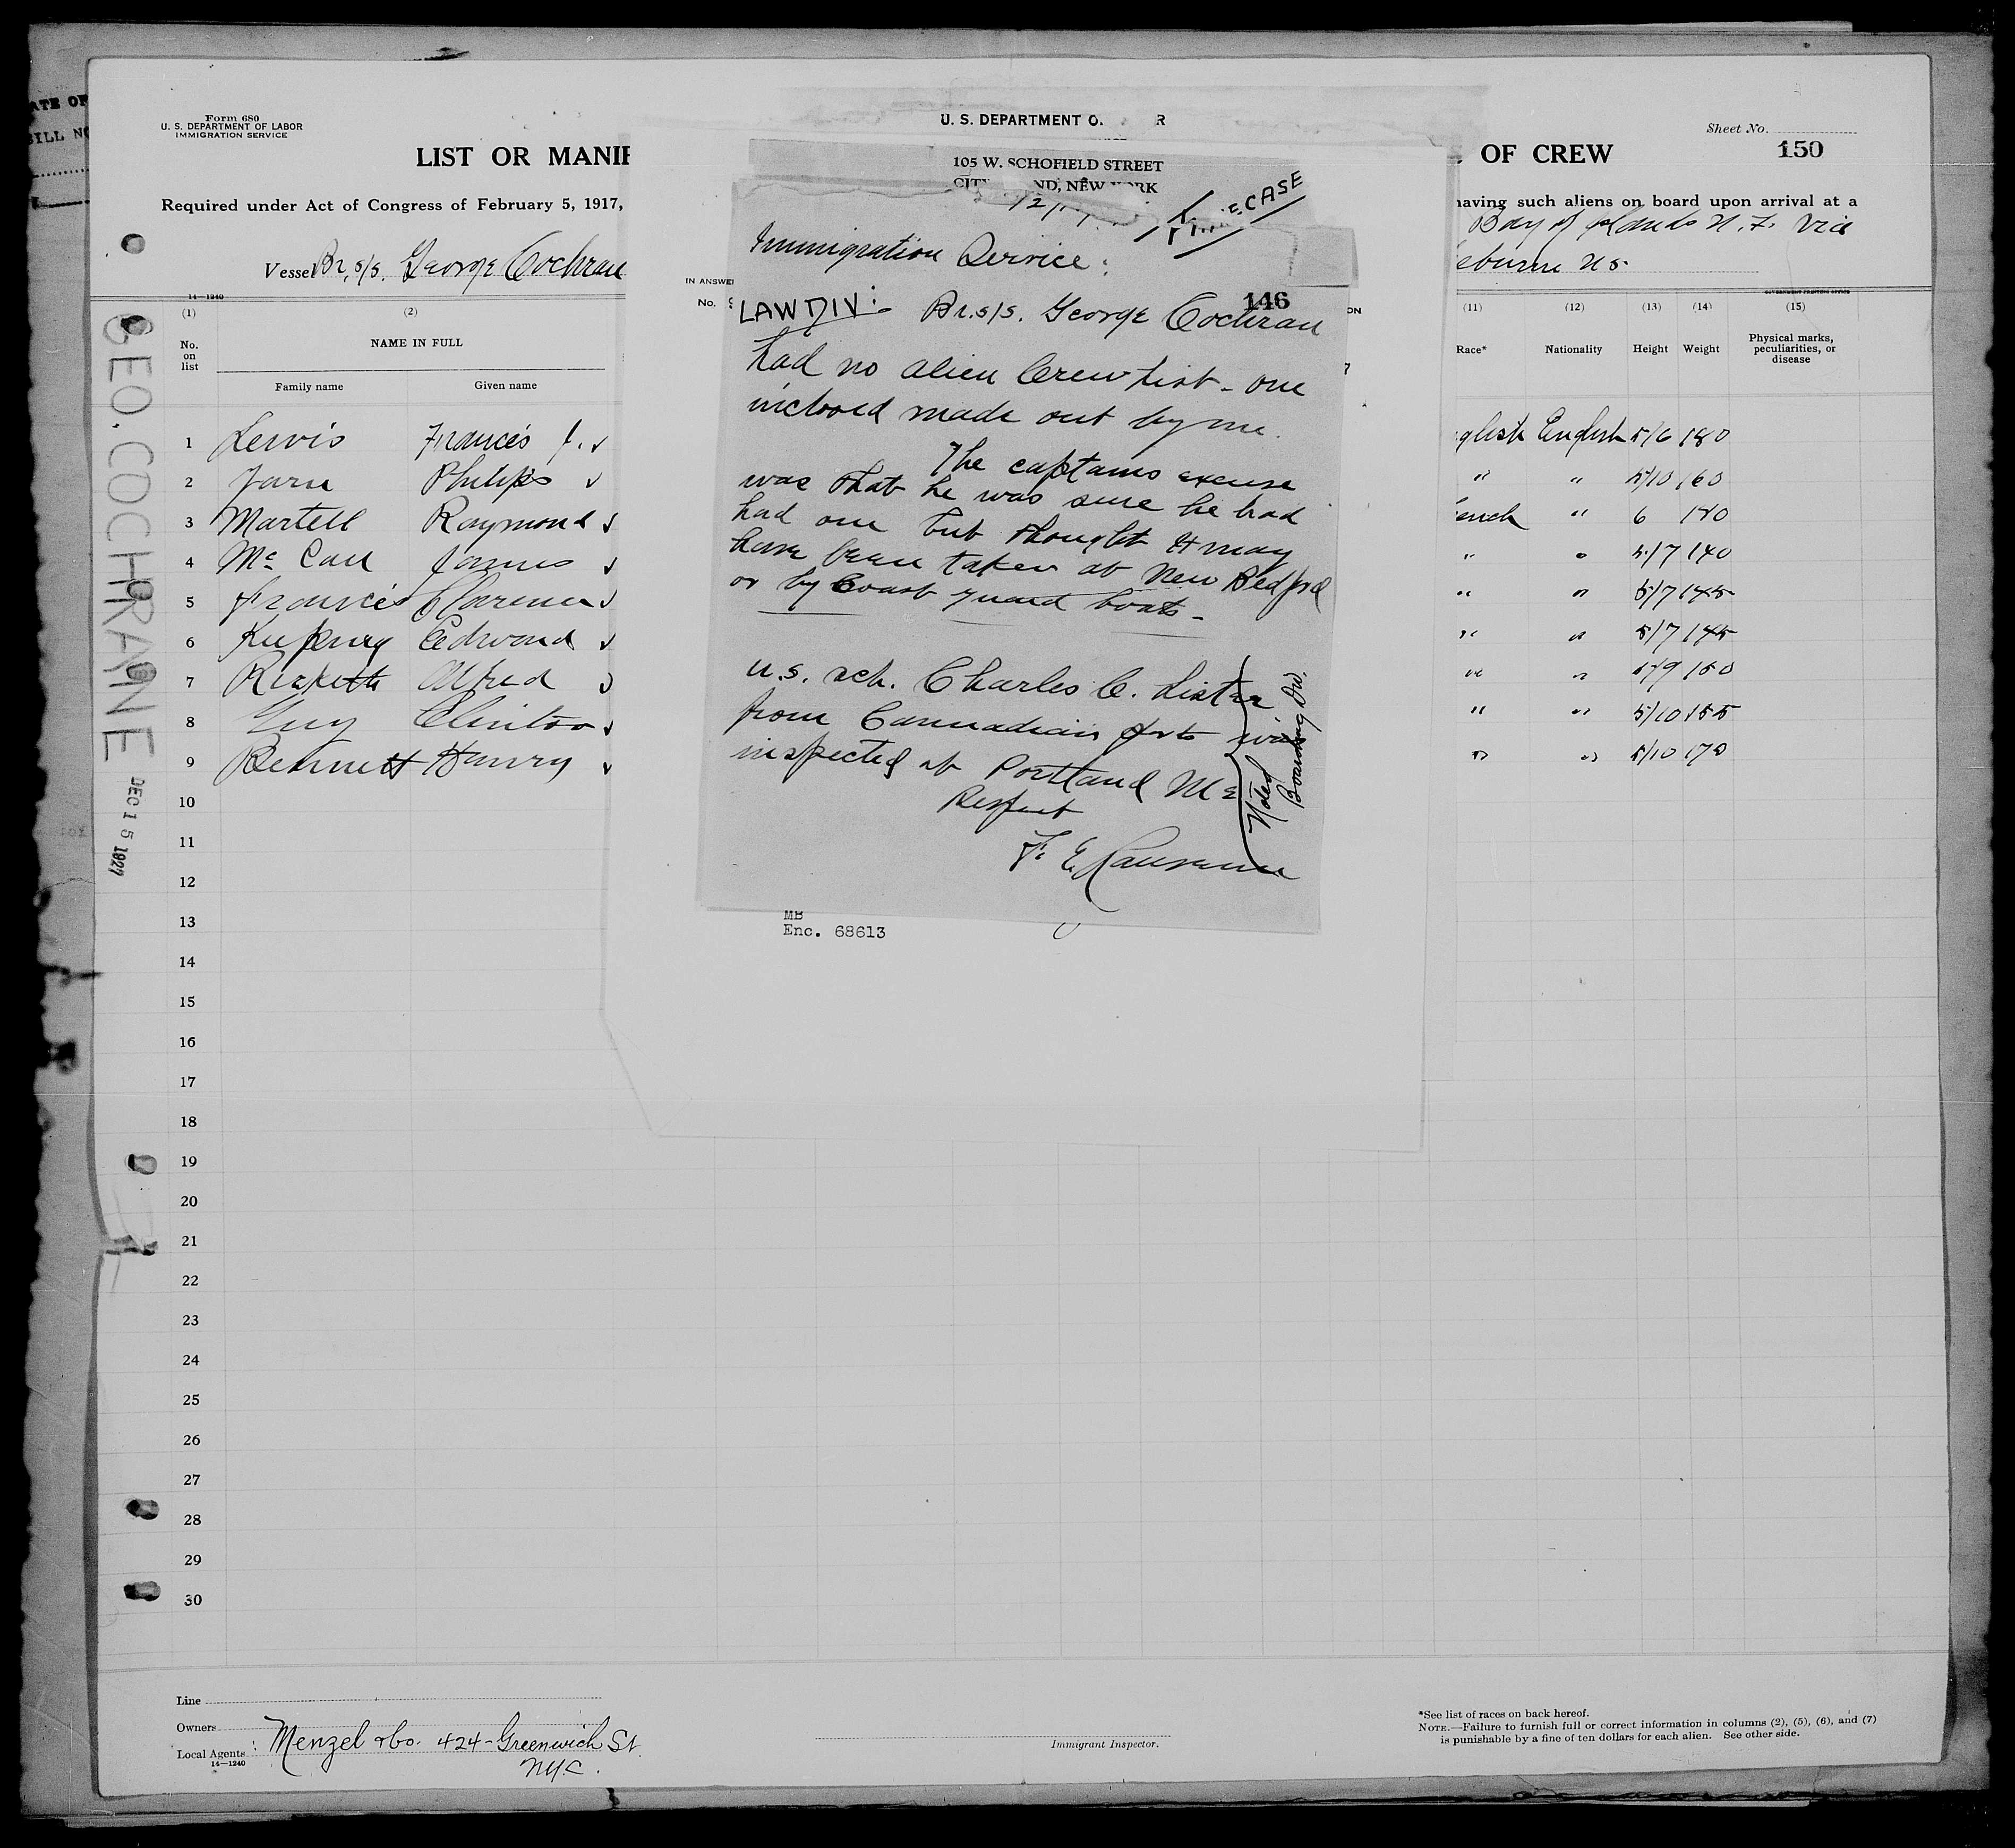 ATE OF
BILL NO
Form 680
U. S. DEPARTMENT OF LABOR
IMMIGRATION SERVICE
Sheet No.
150
LIST OR MANIF
OF CREW
Required under Act of Congress of February 5, 1917,
having such aliens on board upon arrival at a
Vessel Br. s/s. George Cochran
Bay of Islands N. F. via
eburne NS
14—1240
GOVERNMENT PRINTING OFFICE
(1) (2) (11) (12) (13) (14) (15)
No. on list
NAME IN FULL
Family name Given name
Race* Nationality Height Weight Physical marks, peculiarities, or disease
1 Lewis Francis J. ✓ glish English 5/6 180
2 Philips ✓ " " 5/10 160
3 Martell Raymond ✓ ench " 6
4 James ✓ " " 5/7 140
5 Francis Clarence ✓ " " 5/7 145
6 Edward ✓ " " 5/7 145
7 Alfred ✓ " "
8 Guy Clinton ✓ " " 5/10 155
9 Bennett Henry ✓ " " 5/10 170
10
11
12
13
14
15
16
17
18
19
20
21
22
23
24
25
26
27
28
29
30
GEO. COCHRANE
DEC 15 1927
U. S. DEPARTMENT O R
105 W. SCHOFIELD STREET
CIT ND, NEW YORK
CASE
IN ANSWE
No.
ON
Immigration Service:
146
LAW DIV: Br. s/s. George Cochran
had no alien Crew list - one
inclosed made out by me.
The captains excuse
was that he was sure he had
had one but thought it may
have been taken at New Bedford
or by Coast guard boats -
U.S. sch. Charles C. Lister
from Cannadian ports was
inspected at Portland Me
Respect
F. E.
Noted
Boarding Div.
MB
Enc. 68613
Line
Owners
Local Agents : Menzel & Co. 424 - Greenwich St.
NYC.
14—1240
Immigrant Inspector.
*See list of races on back hereof.
NOTE.—Failure to furnish full or correct information in columns (2), (5), (6), and (7)
is punishable by a fine of ten dollars for each alien. See other side.